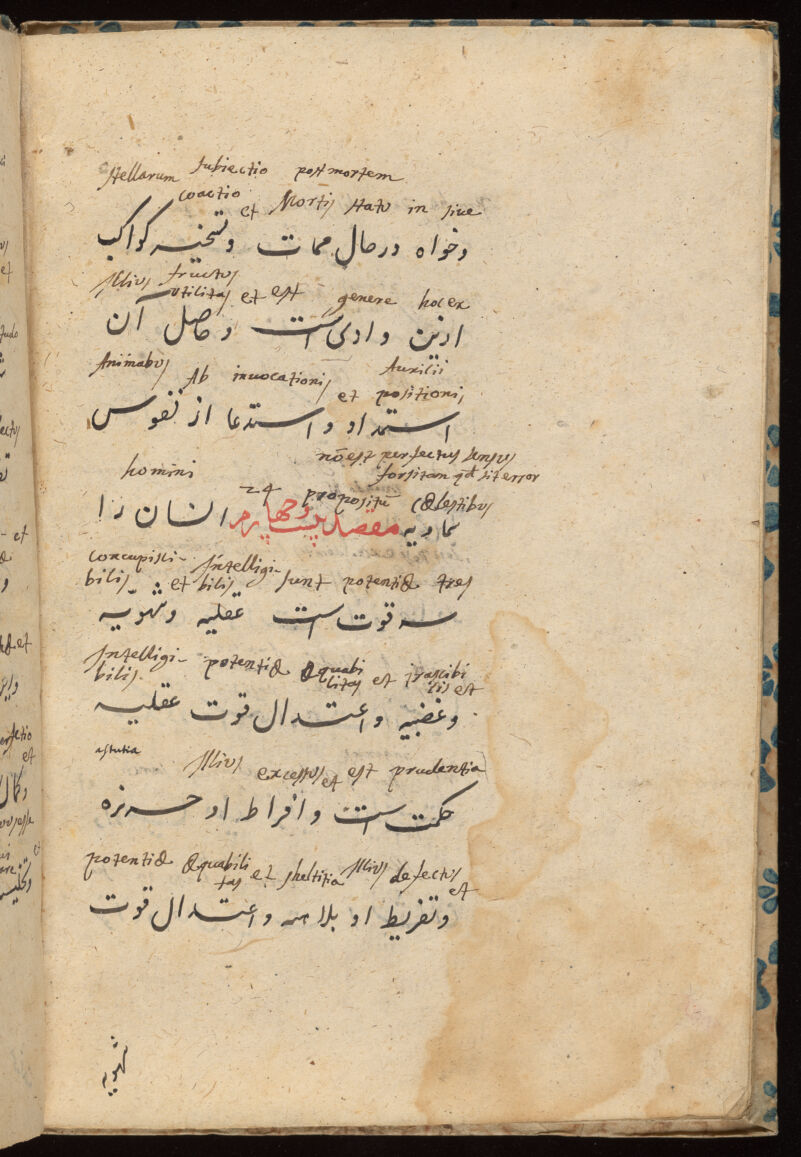 Stellarum subiectio postmortem
coactio et Mortis statu in siue
وخواه در حال ممات وتسخیر کواکب
Illius fructus
utilitas et est genere hoc ex
ازین وادی است وحاصل آن
Animabus Ab inuocationis Auxilii
et positionis
استمداد واستدعا از نفوس
nōest perfectus sensus
homini forsitan qd sit error
24 propositū Cœlestibus
سماویه مقصد بیست وچهارم انسان را
concupisci- Intelligi-
bilis et bilis sunt potentiæ tres
سه قوت است عقلیه وشهویه
Intelligi- potentiæ æquabi et irascibi
bilis. litas et lis et
وغضبیه واعتدال قوت عقلیه
astutia Illius excessus et est prudentia
حکمت است وافراط او جربزه
potentiæ æquabili et stultitia Illius defectus
tas et
وتفریط او بلاهت واعتدال قوت
شهویه